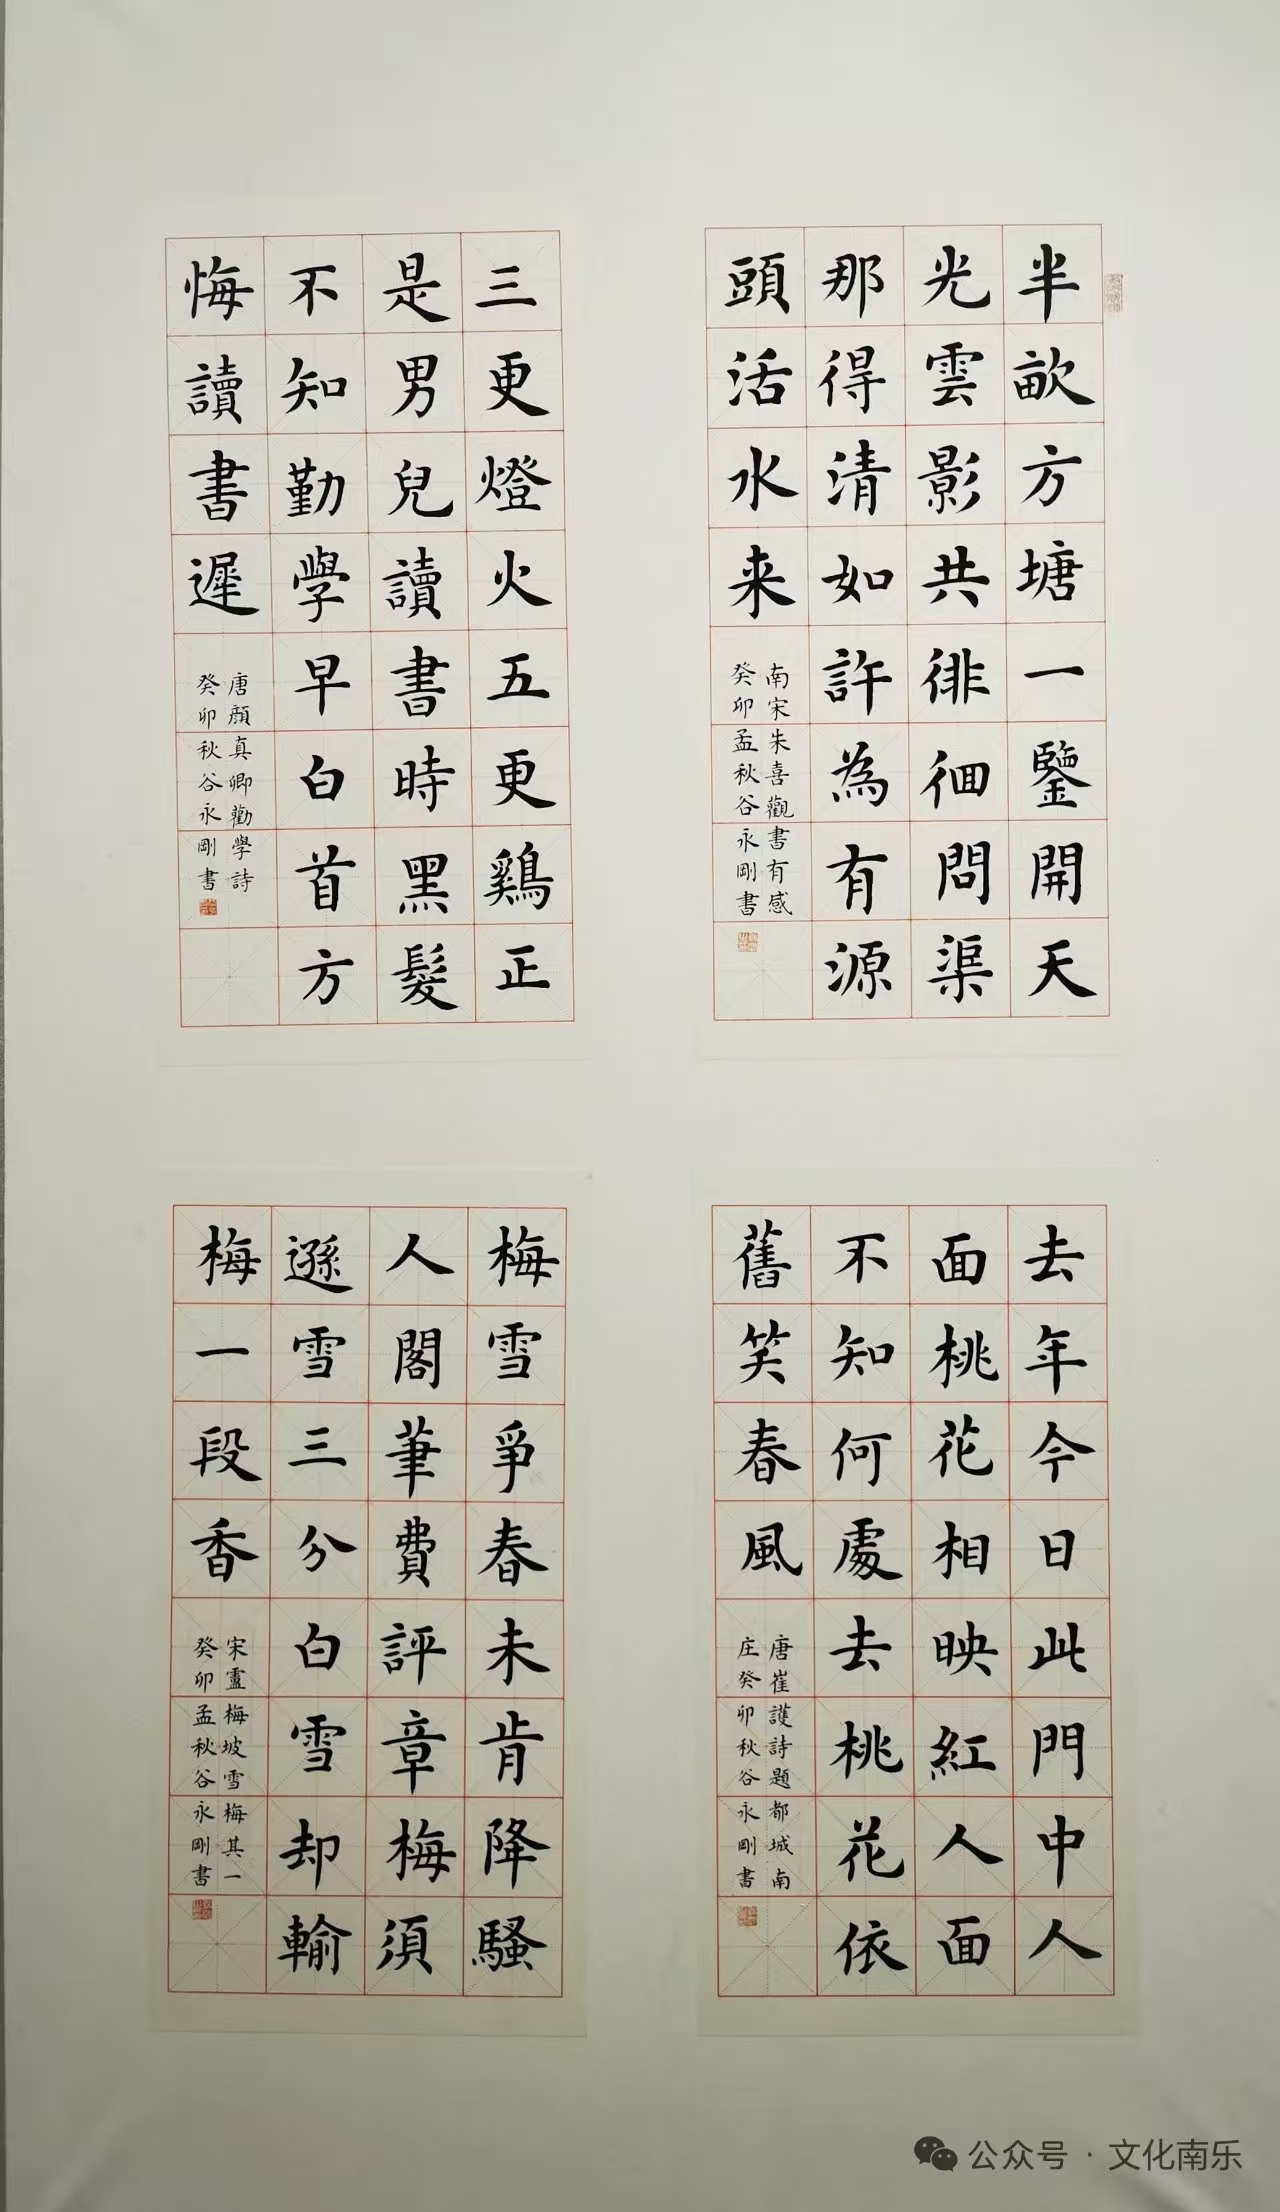 半畝方塘一鑒開天
光雲影共徘徊問渠
那得清如許為有源
頭活水来
南宋朱喜觀書有感
癸卯孟秋谷永剛書
三更燈火五更鷄正
是男兒讀書時黑髮
不知勤學早白首方
悔讀書遲
唐顔真卿勸學詩
癸卯秋谷永剛書
去年今日此門中人
面桃花相映紅人面
不知何處去桃花依
舊笑春風
唐崔護詩題都城南
庄癸卯秋谷永剛書
梅雪爭春未肯降騷
人閣筆費評章梅須
遜雪三分白雪却輸
梅一段香
宋盧梅坡雪梅其一
癸卯孟秋谷永剛書
公众号·文化南乐